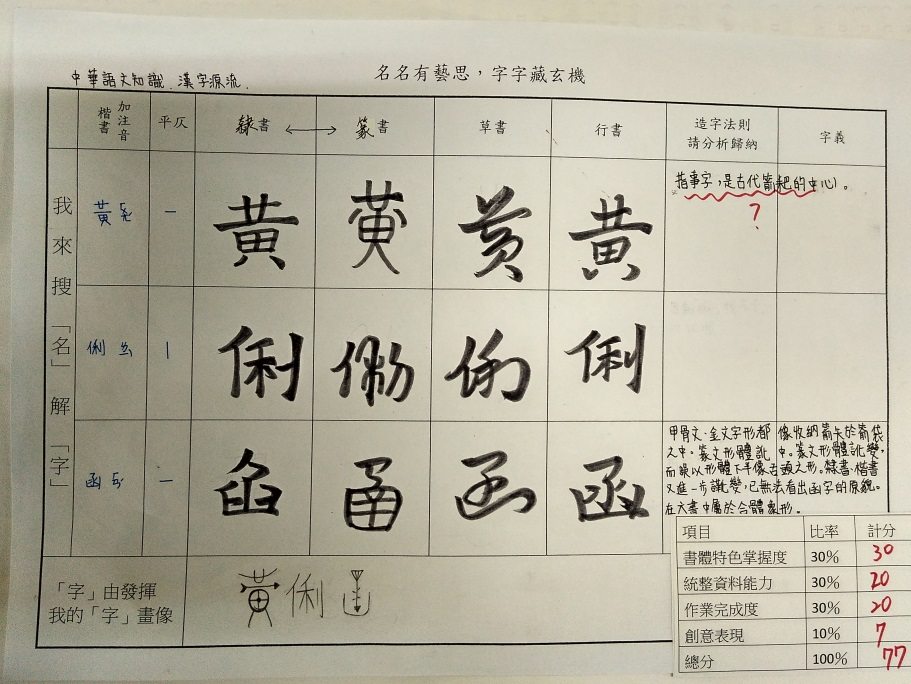 中華語文知識、漢字源流、
名名有藝思，字字藏玄機
楷書 加注音 平仄 隸書 ←→ 篆書 草書 行書 造字法則 請分析歸納 字義
我來搜「名」解「字」
黃ㄏㄨㄤˊ 一 黃 黃 黃 黃 指事字，是古代箭靶的中心。
?
俐 ㄌㄧˋ 丨 俐 俐 俐 俐
函 ㄏㄢˊ 一 函 函 函 函
甲骨文、金文字形都像收納箭矢於箭袋
之中。篆文形體訛中。篆文形體訛變，
而誤以形體下半像舌頭之形。隸書、楷書
又進一步訛變，已無法看出函字的原貌。
在六書中屬於合體象形。
「字」由發揮
我的「字」畫像
黃俐
項目 比率 計分
書體特色掌握度 30% 30
統整資料能力 30% 20
作業完成度 30% 20
創意表現 10% 7
總分 100% 77